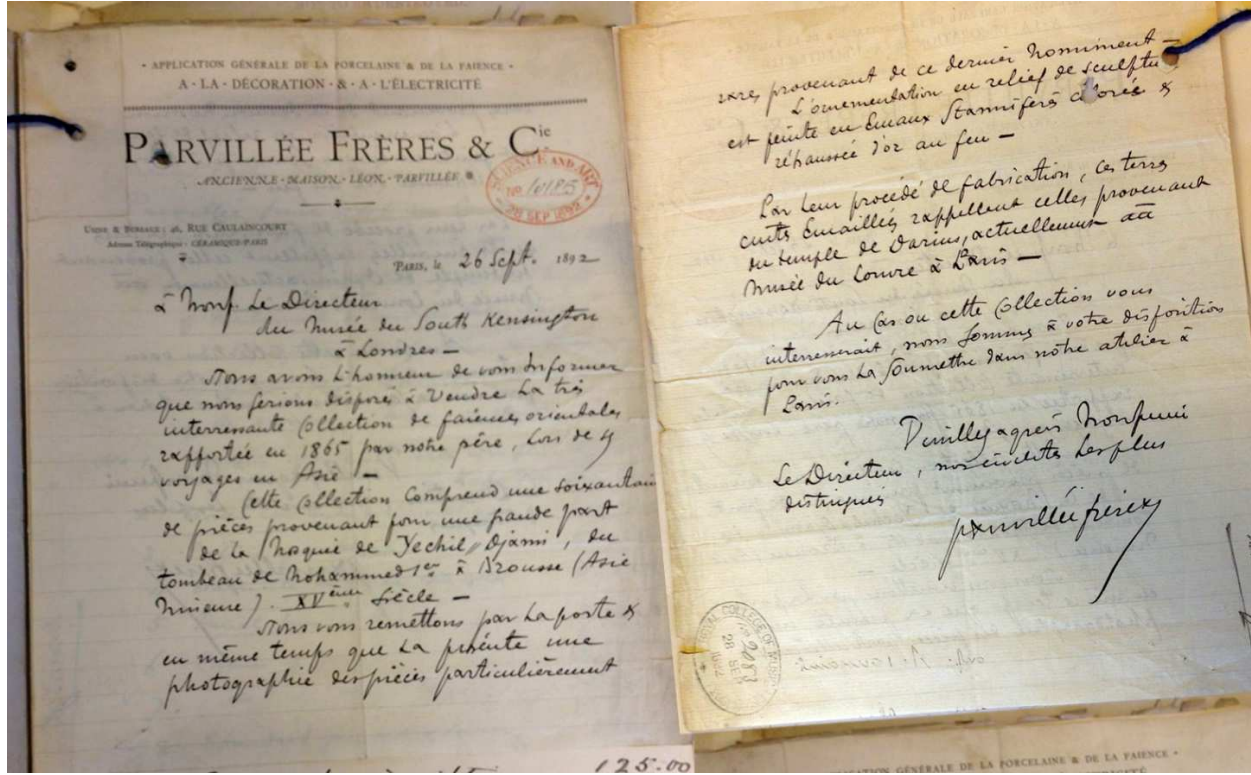 · APPLICATION GÉNÉRALE DE LA PORCELAINE & DE LA FAIENCE ·
A · LA · DÉCORATION · & · A · L'ÉLECTRICITÉ
PARVILLÉE FRÈRES & Cie
ANCIENNE · MAISON · LÉON · PARVILLÉE
SCIENCE AND ART
28 SEP 1892
USINE & BUREAUX : 46, RUE CAULAINCOURT
Adresse Télégraphique : CÉRAMIQUE-PARIS
PARIS, le 26 Sept. 1892
à Mons. Le Directeur
du Musée du South Kensington
à Londres —
Nous avons l'honneur de vous Informer
que nous serions disposés à Vendre La très
interressante Collection de faiences orientales
rapportée en 1865 par notre père, Lors de ses
voyages en Asie —
Cette Collection Comprend une soixantaine
de pièces provenant pour une grande part
de la Mosquée de Yechil Djami, du
tombeau de Mohammed 1er à Brousse (Asie
Mineure). XVème Siècle —
Nous vous remettons par La poste &
en même temps que La présente une
photographie des pièces particulièrement
125.00
rares provenant de ce dernier Monument —
L'ornementation en relief de sculpture
est peinte en Emaux Stannifères colorés &
réhaussée d'or au feu —
Par Leur procédé de fabrication, ces terres
cuites Emaillées rappellent celles provenant
du temple de Darius, actuellement au
Musée du Louvre à Paris —
Au Cas ou cette Collection vous
interresserait, nous Sommes à votre disposition
pour vous La Soumettre dans notre atelier à
Paris.
Veuillez agréer Monsieur
Le Directeur, nos civilités Les plus
distinguées
parvillée frères
28 SEP
1892
PORCELAINE & DE LA FAIENCE ·